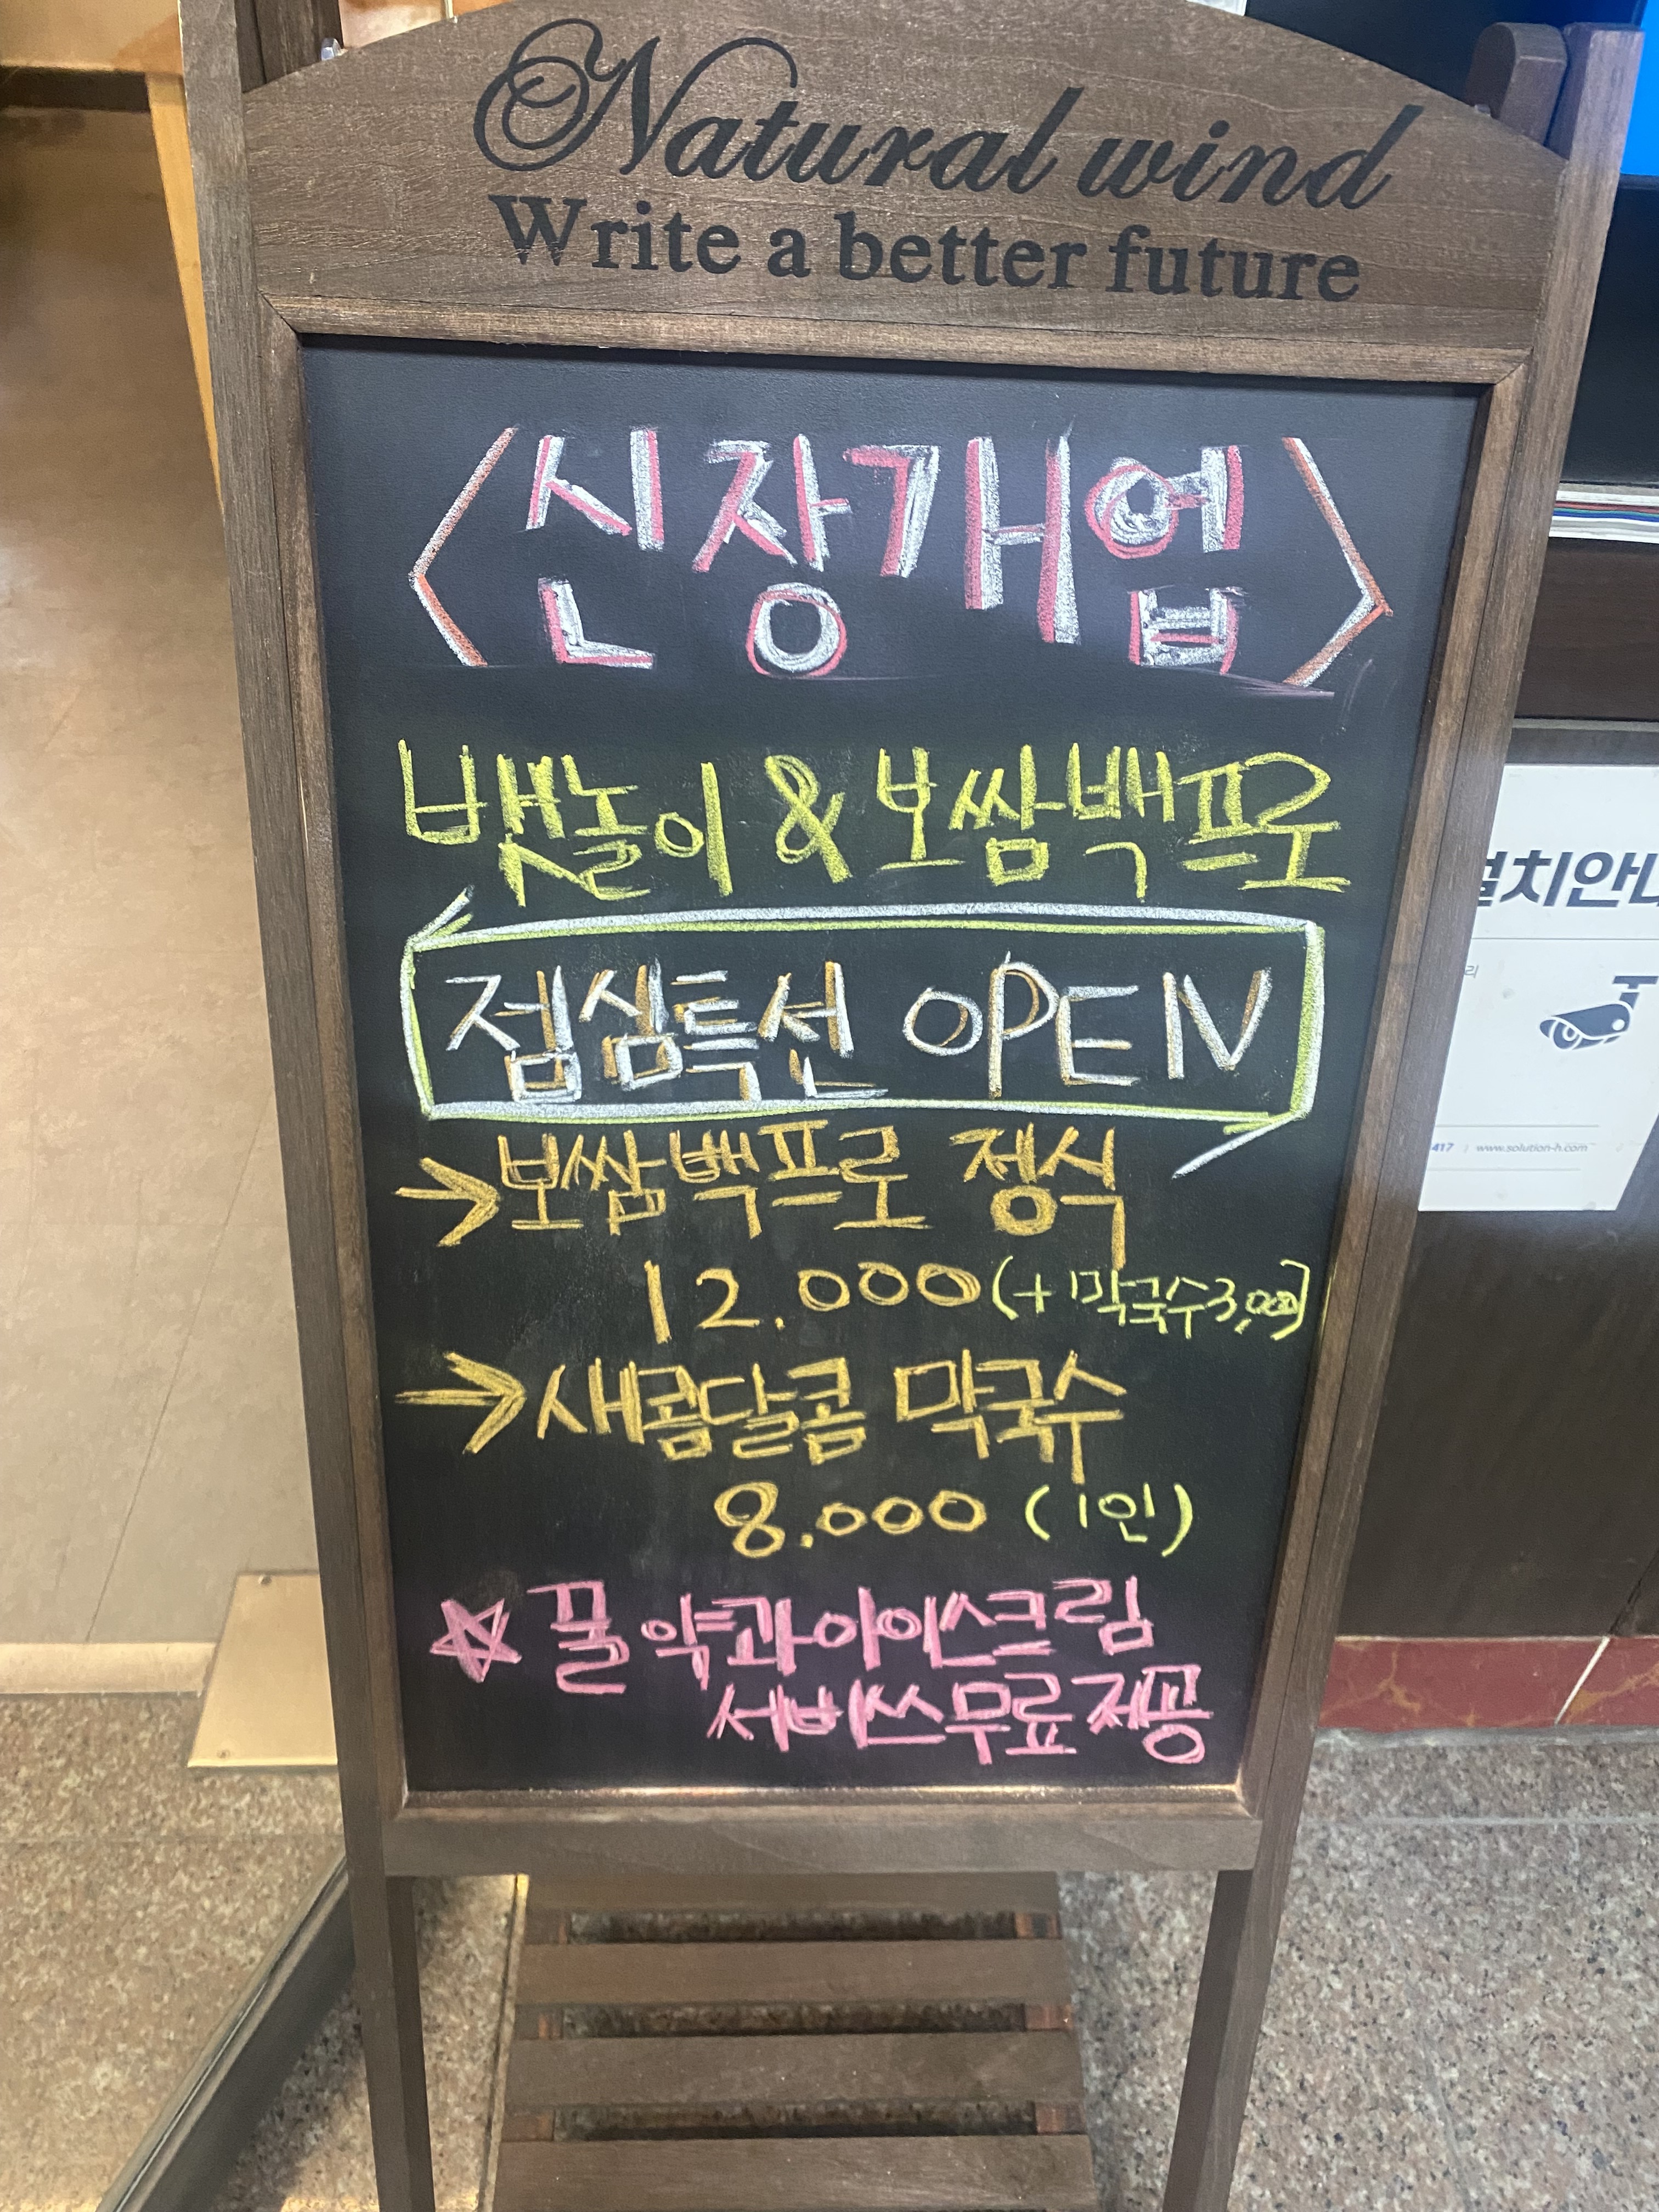 Natural wind
Write a better future
<신장개업>
뱃놀이 & 보쌈백프로
점심특선 OPEN
→보쌈백프로 정식
12.000(+막국수3,000)
→새콤달콤 막국수
8.000 (1인)
☆ 꿀약과아이스크림
서비쓰무료제공
설치안내
417 | www.solution-h.com